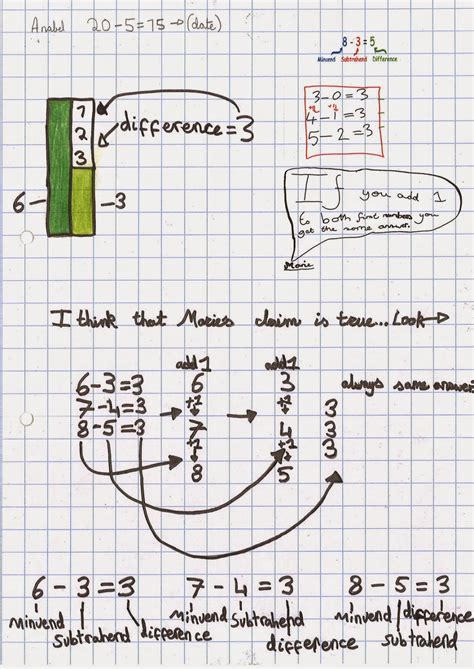 Anabel 20-5=15→(date)
8 - 3 = 5
Minuend Subtrahend Difference
1
2
3
difference=3
6-
-3
3-0=3
+1 +1
4-1=3
5-2=3
If you add 1
to both first numbers you
get the same answer.
Marie
I think that Maries claim is true... Look→
add 1 add 1 always same answer
6-3=3 6 3
+1 +1 3
7-4=3 → 7 → 4 3
8-5=3 +1 +1 3
8 5
6-3=3 7-4=3 8-5=3
minuend subtrahend difference
minuend subtrahend difference
minuend subtrahend difference